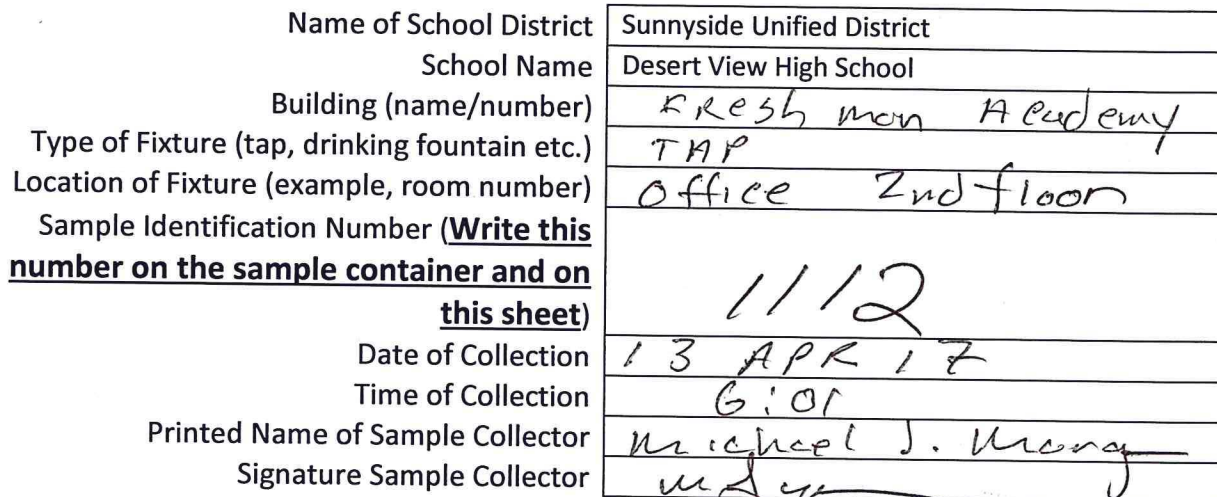 Name of School District Sunnyside Unified District
School Name Desert View High School
Building (name/number) FResh man Academy
Type of Fixture (tap, drinking fountain etc.) TAP
Location of Fixture (example, room number) office 2nd floor
Sample Identification Number (Write this
number on the sample container and on
this sheet) 1112
Date of Collection 13 APR 17
Time of Collection 6:01
Printed Name of Sample Collector Michael J.
Signature Sample Collector